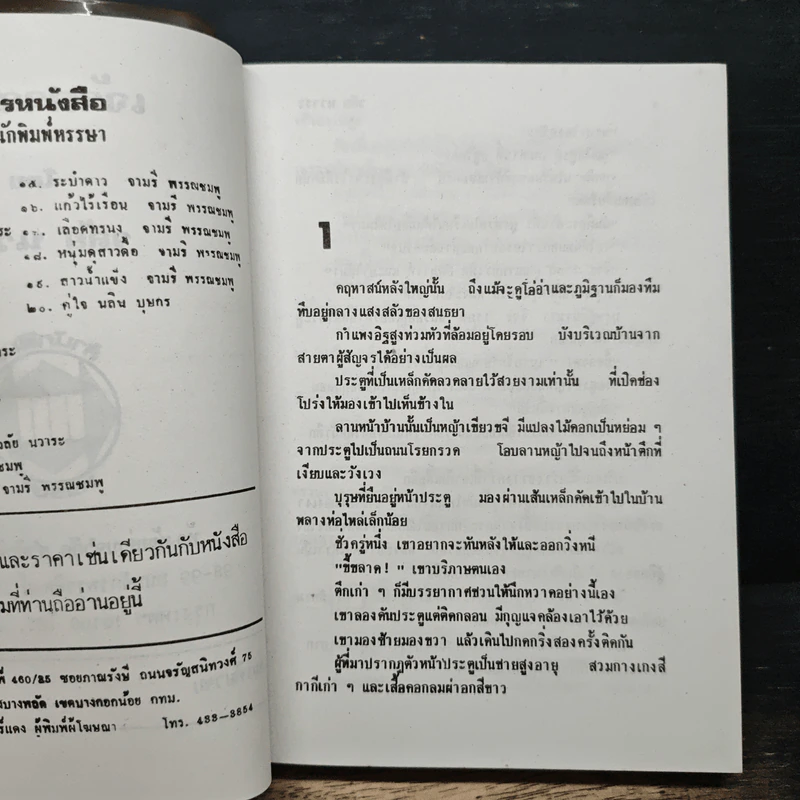 รหนังสือ
นักพิมพ์หรรษา
๑๕. ระบำดาว จามรี พรรณชมพู
๑๖. แก้วไร้เรือน จามรี พรรณชมพู
ระ ๑๗. เลือดทรนง จามรี พรรณชมพู
๑๘. หนุ่มดุสาวดื้อ จามรี พรรณชมพู
๑๙. สาวน้ำแข็ง จามรี พรรณชมพู
๒๐. คู่ใจ นลิน บุษกร
ระ
วลัย นวาระ
ชมพู
จามรี พรรณชมพู
และราคาเช่นเดียวกันกับหนังสือ
มที่ท่านถืออ่านอยู่นี้
ที่ 460/25 ซอยภาณุรังษี ถนนจรัญสนิทวงศ์ 75
งบางพลัด เขตบางกอกน้อย กทม.
ร์แดง ผู้พิมพ์ผู้โฆษณา โทร. 433-3854
1
คฤหาสน์หลังใหญ่นั้น ถึงแม้จะดูโอ่อ่าและภูมิฐานก็มองทึม
ทึบอยู่กลางแสงสลัวของสนธยา
กำแพงอิฐสูงท่วมหัวที่ล้อมอยู่โดยรอบ บังบริเวณบ้านจาก
สายตาผู้สัญจรได้อย่างเป็นผล
ประตูที่เป็นเหล็กดัดลวดลายไว้สวยงามเท่านั้น ที่เปิดช่อง
โปร่งให้มองเข้าไปเห็นข้างใน
ลานหน้าบ้านนั้นเป็นหญ้าเขียวขจี มีแปลงไม้ดอกเป็นหย่อม ๆ
จากประตูไปเป็นถนนโรยกรวด โอบลานหญ้าไปจนถึงหน้าตึกที่
เงียบและวังเวง
บุรุษที่ยืนอยู่หน้าประตู มองผ่านเส้นเหล็กดัดเข้าไปในบ้าน
พลางห่อไหล่เล็กน้อย
ชั่วครู่หนึ่ง เขาอยากจะหันหลังให้และออกวิ่งหนี
"ขี้ขลาด!" เขาบริภาษตนเอง
ตึกเก่า ๆ ก็มีบรรยากาศชวนให้นึกหวาดอย่างนี้เอง
เขาลองดันประตูแต่ติดกลอน มีกุญแจคล้องเอาไว้ด้วย
เขามองซ้ายมองขวา แล้วเดินไปกดกริ่งสองครั้งติดกัน
ผู้ที่มาปรากฏตัวหน้าประตูเป็นชายสูงอายุ สวมกางเกงสี
กากีเก่า ๆ และเสื้อคอกลมผ่าอกสีขาว